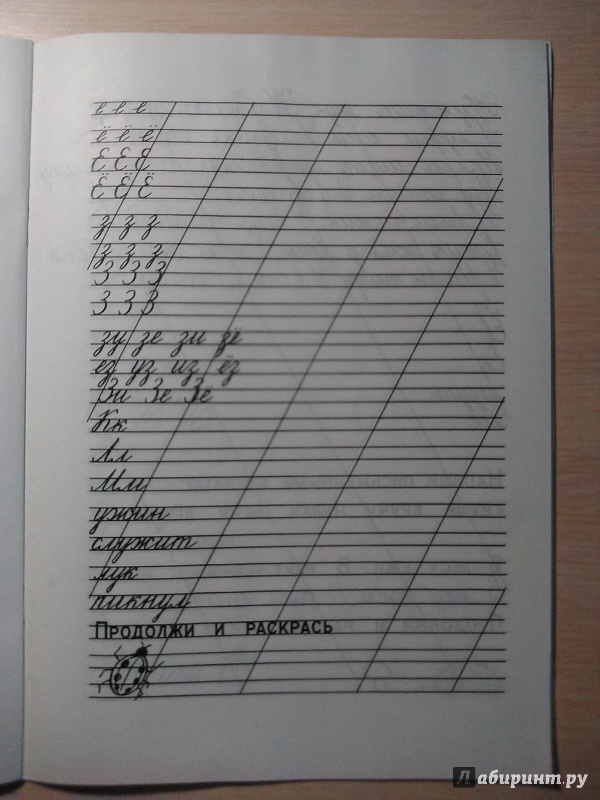 е е е
ё ё ё
Е Е Е
Ё Ё Ё
з з з
з з з
З З З
З З З
зу зе зи зё
ез уз из ёз
Зи Зе Зе
Кк
Лл
Мм
ужин
служит
лук
пикнул
ПРОДОЛЖИ И РАСКРАСЬ
Лабиринт.ру